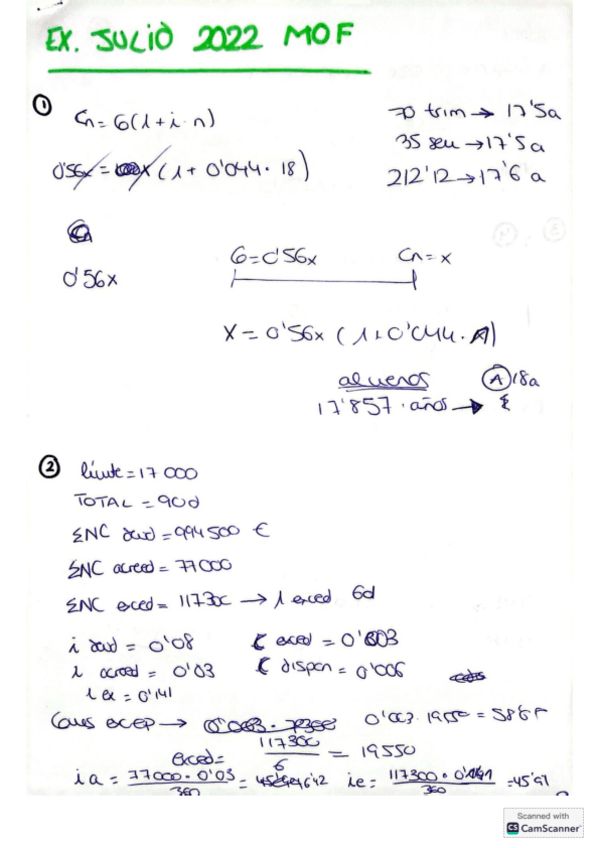 EX. JULIO 2022 MOF
① Cn = G(1+i·n)
70 trim → 17'5a
35 sem → 17'5a
212'12 → 17'6 a
0'56x = x (1 + 0'044 · 18)
0'56x
G = 0'56x Cn = x
X = 0'56x (1 + 0'044 · A)
al menos Ⓐ 18a
17'857 · años →
② límite = 17 000
TOTAL = 90d
ΣNC deud = 994 500 €
ΣNC acreed = 77000
ΣNC exced = 117300 → 1 exced 6d
i deud = 0'08 exced = 0'003
i acreed = 0'03 dispon = 0'006
i ex = 0'141
Comis excep → 0'003 · 19550 = 58'65
exced = 117300 / 6 = 19550
ia = 77000 · 0'03 / 360 = 6'42 ie = 117300 · 0'141 / 360 = 45'91
Scanned with
CS CamScanner